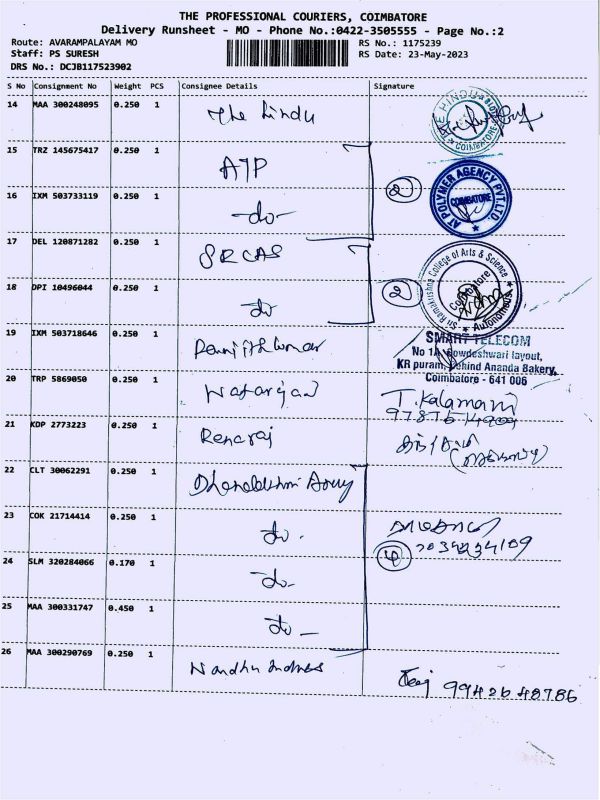 THE PROFESSIONAL COURIERS, COIMBATORE
Delivery Runsheet - MO - Phone No.:0422-3505555 - Page No.:2
Route: AVARAMPALAYAM MO
RS No.: 1175239
Staff: PS SURESH
RS Date: 23-May-2023
DRS No.: DCJB117523902
S No Consignment No Weight PCS Consignee Details Signature
14 MAA 300248095 0.250 1 The hindu
THE HINDU COIMBATORE
15 TRZ 145675417 0.250 1 ATP
2
AT POLYMER AGENCY PVT.LTD. COIMBATORE
16 IXM 503733119 0.250 1 -do-
17 DEL 120871282 0.250 1 SRCAS
Sri Ramakrishna College of Arts & Science Coimbatore Autonomous
18 DPI 10496044 0.250 1 do
2
19 IXM 503718646 0.250 1
SMART TELECOM
No 1A, Gowdeshwari layout,
KR puram, Behind Ananda Bakery,
Coimbatore - 641 006
20 TRP 5869050 0.250 1
T. Kalamani
21 KDP 2773223 0.250 1
22 CLT 30062291 0.250 1
23 COK 21714414 0.250 1 do.
4
24 SLM 320284066 0.170 1 -do-
25 MAA 300331747 0.450 1 do-
26 MAA 300290769 0.250 1
99426 48786